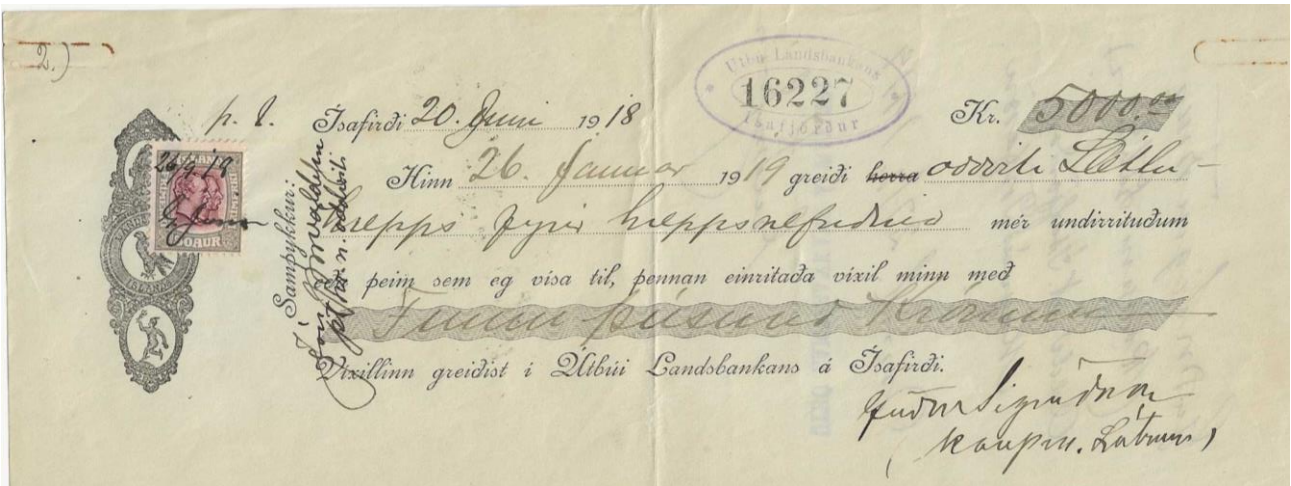 2.)
Útbú Landsbankans
16227
Ísafjörður
p. t. Ísafirði 20. Juni 1918 Kr. 5000.00
Hinn 26. Januar 1919 greiði herra oddviti Sléttu-
hrepps fyrir hreppsnefndina mér undirrituðum
eða þeim sem eg vísa til, þennan einritaða víxil minn með
Fimm þúsund Krónum
Víxillinn greiðist í Útbúi Landsbankans á Ísafirði.
Samþykkur:
p.t. h.n. oddviti
26/1 19
ÍSLAND
AUR
Sigurðsson
kaupm. Látrum